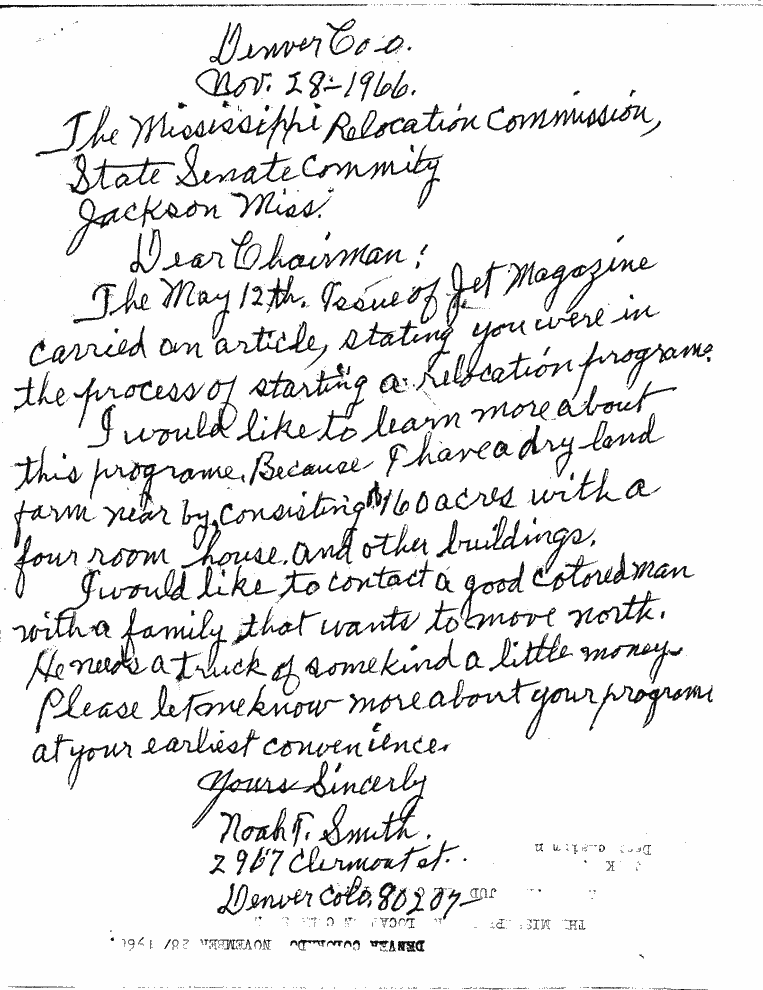 Denver Colo.
Nov. 28-1966.
The Mississippi Relocation Commission,
State Senate Commity
Jackson Miss.
Dear Chairman:
The May 12th. Issue of Jet Magazine
carried an article, stating you were in
the process of starting a relocation programe.
I would like to learn more about
this programe. Because I have a dry land
farm near by, consisting 160 acres with a
four room house. and other buildings.
I would like to contact a good colored man
with a family that wants to move north.
He needs a truck of some kind a little money.
Please let me know more about your programe
at your earliest convenience.
Yours Sincerly
Noah T. Smith.
2967 Clermont st.
Denver Colo. 80207
DENVER COLORADO NOVEMBER 28/ 1966.